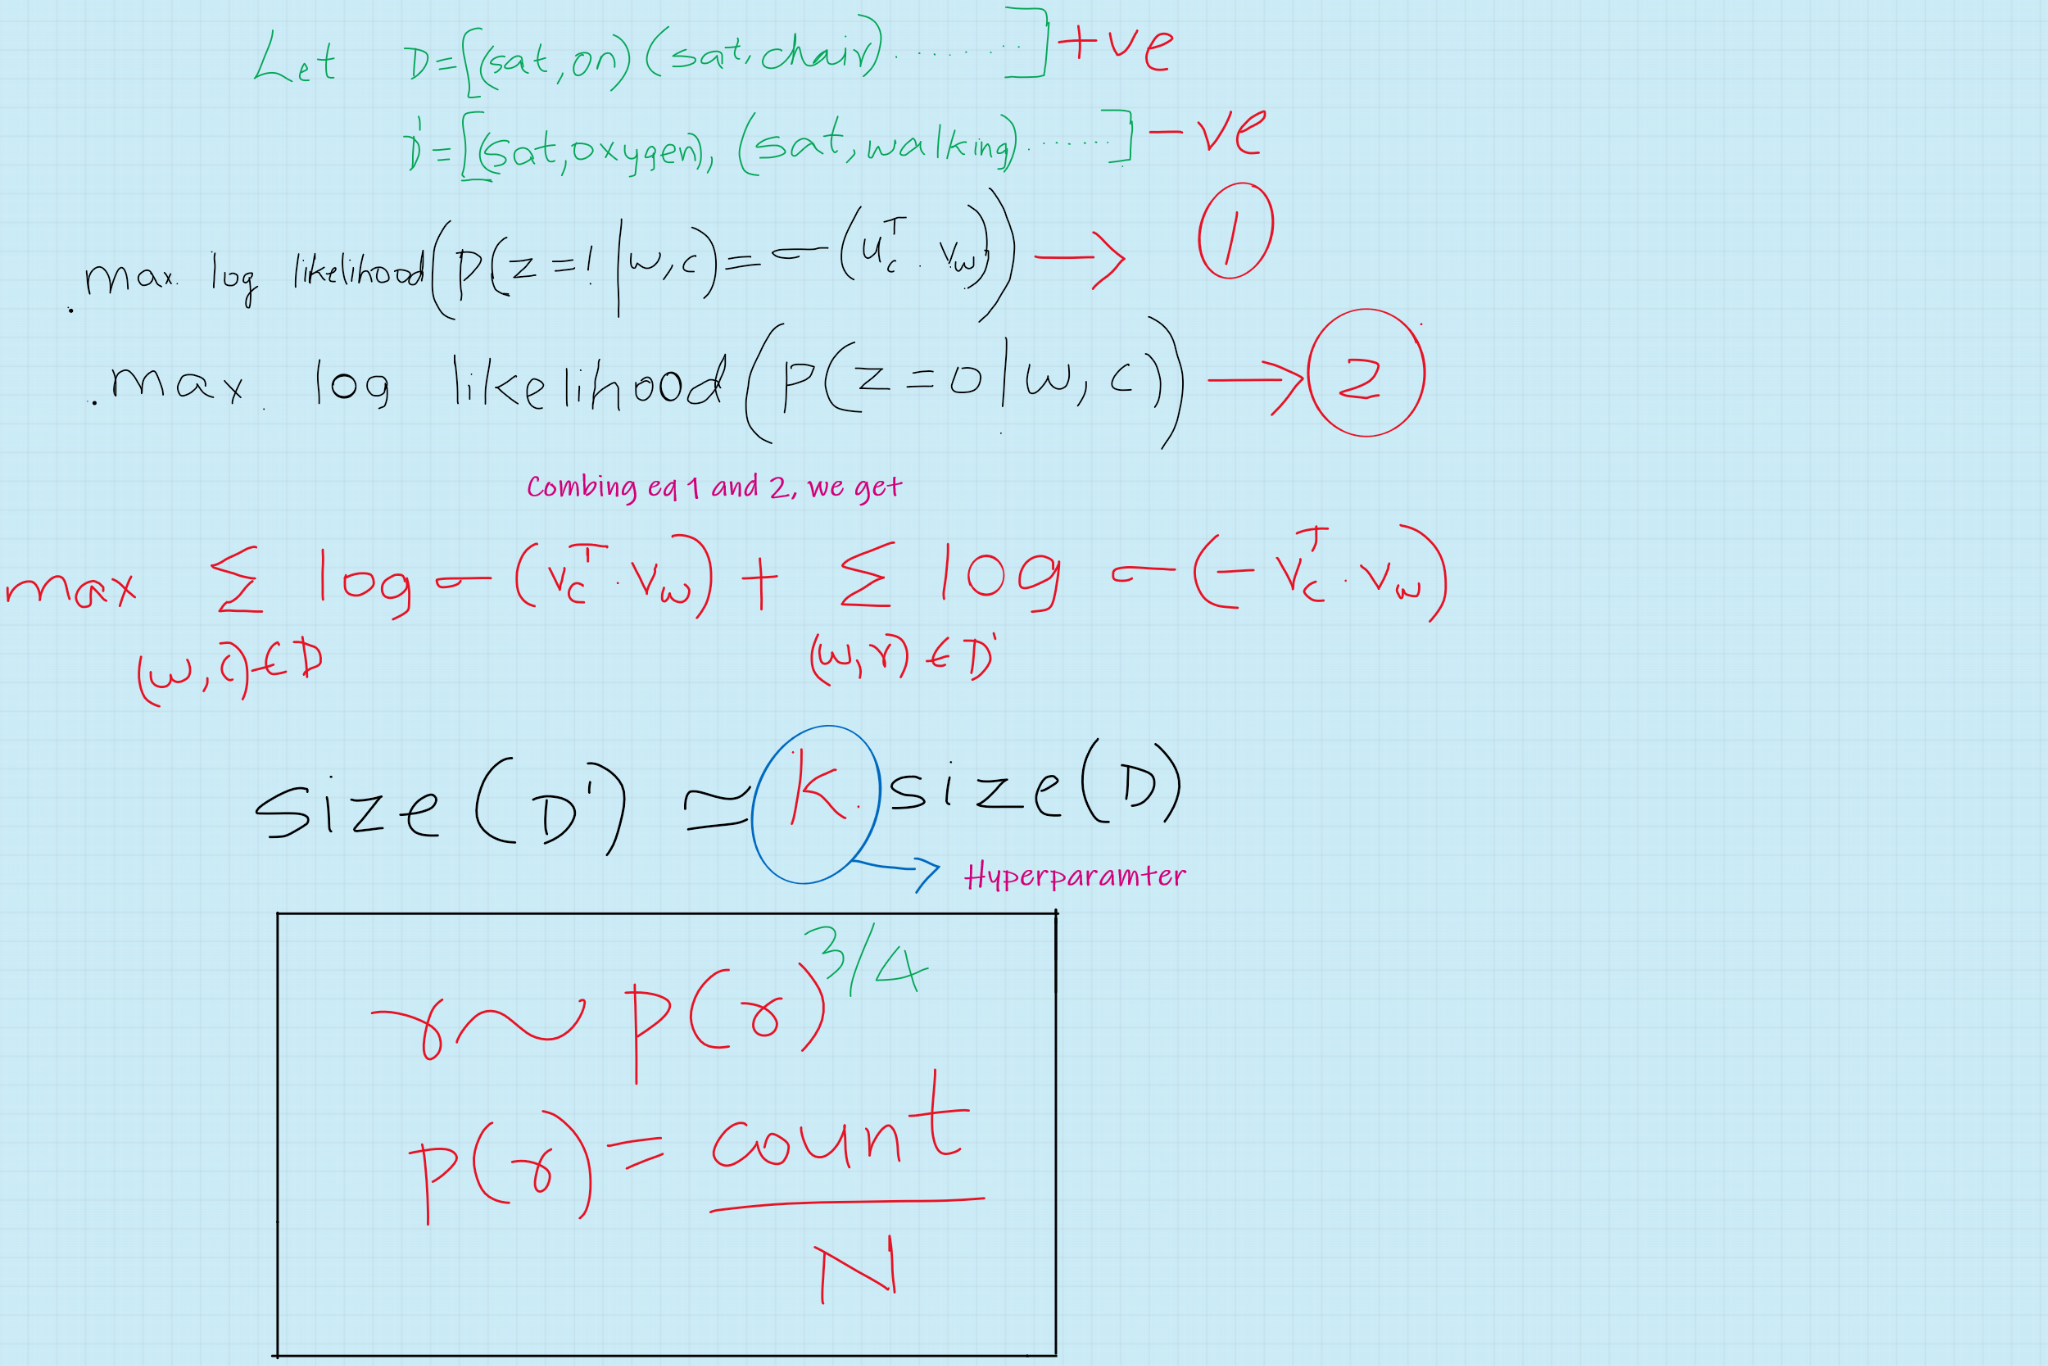 Let D=[(sat,on)(sat,chair)........] +ve
D'=[(sat,oxygen),(sat,walking).......] -ve
.max. log likelihood(P(z=1|w,c)=σ(u_c^T.v_w)) → 1
.max. log likelihood(P(z=0|w,c)) → 2
Combing eq 1 and 2, we get
max Σ log σ(v_c^T.v_w) + Σ log σ(-v_c^T.v_w)
(w,c)∈D (w,r)∈D'
size(D') ≃ k.size(D)
Hyperparamter
r~P(r)^3/4
P(r)=count
N